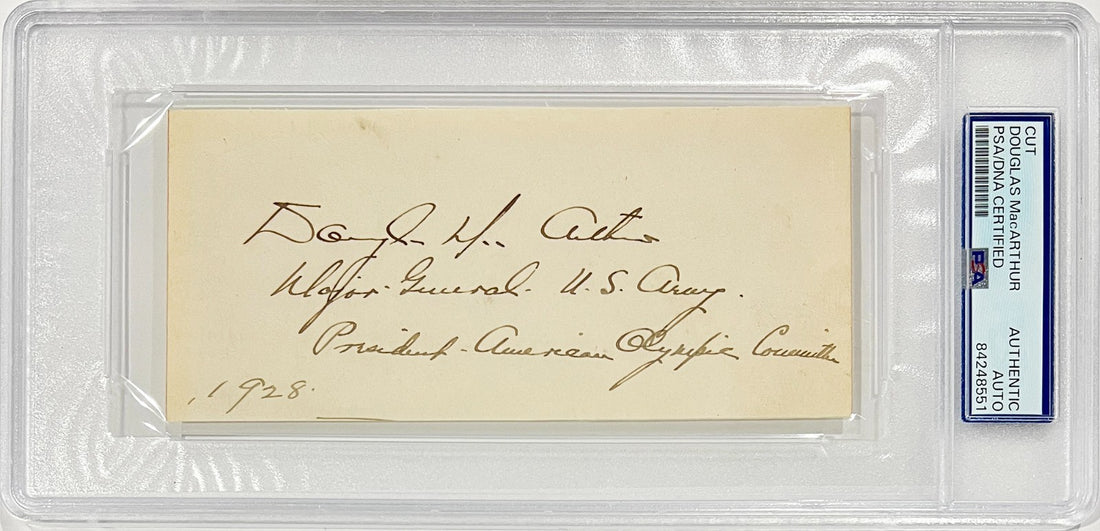 Douglas MacArthur
Major General. U. S. Army.
President - American Olympic Committee
, 1928.
CUT
DOUGLAS MacARTHUR
PSA/DNA CERTIFIED
PSA
AUTHENTIC
AUTO
84248551